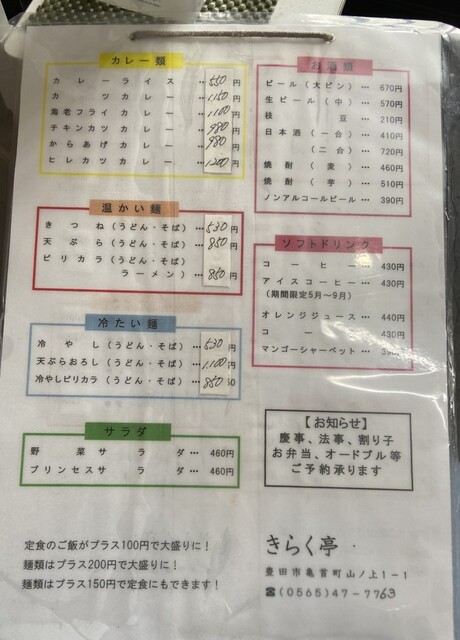 カレー類
カレーライス … 550円
カツカレー … 1150円
海老フライカレー … 1100円
チキンカツカレー … 980円
からあげカレー … 980円
ヒレカツカレー … 1200円
温かい麺
きつね(うどん・そば) … 530円
天ぷら(うどん・そば) … 850円
ピリカラ(うどん・そば)
ラーメン) … 850円
冷たい麺
冷やし(うどん・そば) … 530円
天ぷらおろし(うどん・そば) … 1,100円
冷やしピリカラ(うどん・そば) … 850
サラダ
野菜サラダ … 460円
プリンセスサラダ … 460円
お酒類
ビール(大ビン) … 670円
生ビール(中) … 570円
枝豆 … 210円
日本酒(一合) … 410円
(二合) … 720円
焼酎(麦) … 460円
焼酎(芋) … 510円
ノンアルコールビール … 390円
ソフトドリンク
コーヒー … 430円
アイスコーヒー … 430円
(期間限定5月~9月)
オレンジジュース … 440円
コー 430円
マンゴーシャーベット …
【お知らせ】
慶事、法事、割り子
お弁当、オードブル等
ご予約承ります
定食のご飯がプラス100円で大盛りに!
麺類はプラス200円で大盛りに!
麺類はプラス150円で定食にもできます!
きらく亭
豊田市亀首町山ノ上1-1
☎(0565)47-7763